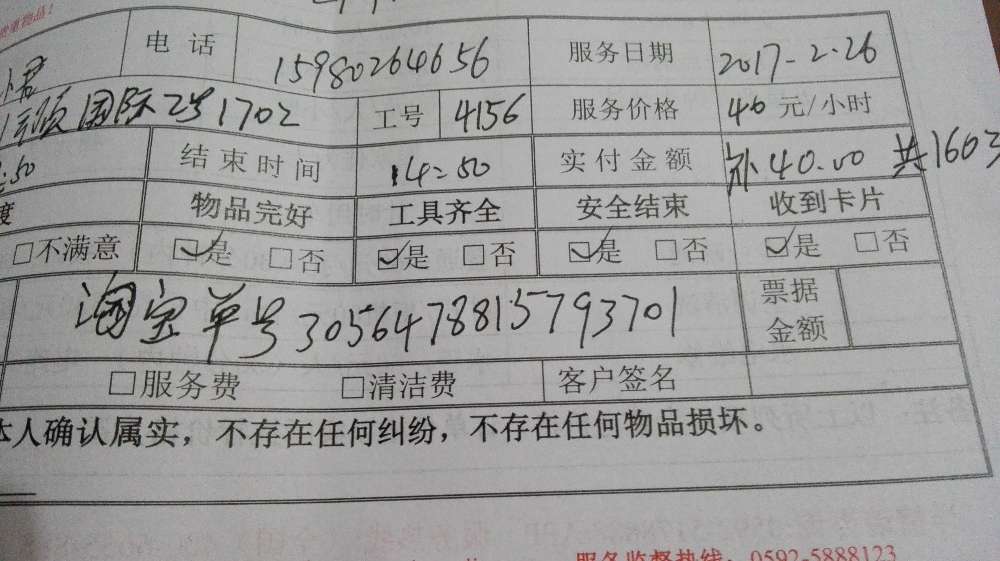 贵重物品！
电话 15980264656 服务日期 2017-2.26
国际2号1702 工号 4156 服务价格 40 元/小时
:50 结束时间 14:50 实付金额 补40.00 共160元
度 物品完好 工具齐全 安全结束 收到卡片
□不满意 ☑是 □否 ☑是 □否 ☑是 □否 ☑是 □否
淘宝单号3056478815793701 票据金额
□服务费 □清洁费 客户签名
本人确认属实，不存在任何纠纷，不存在任何物品损坏。
服务监督热线：0592-5888123